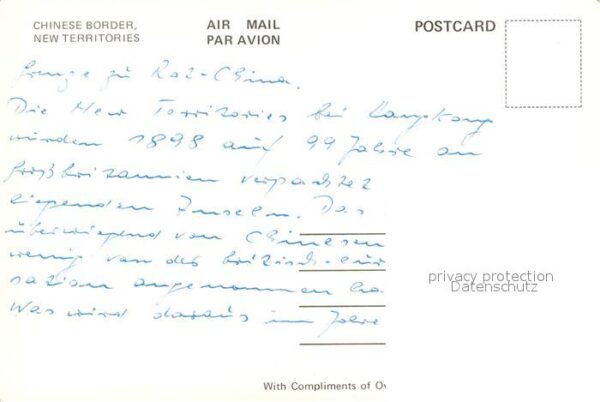 CHINESE BORDER,
NEW TERRITORIES
AIR MAIL
PAR AVION
POSTCARD
Grenze zu Rot-China.
Die New Territories bei Hongkong
wurden 1898 auf 99 Jahre an
Großbritannien verpachtet
liegenden Inseln. Das
überwiegend von Chinesen
wenig von der britisch-eur
sation angenommen ha
Was wird daraus im Jahre
privacy protection
Datenschutz
With Compliments of Ov